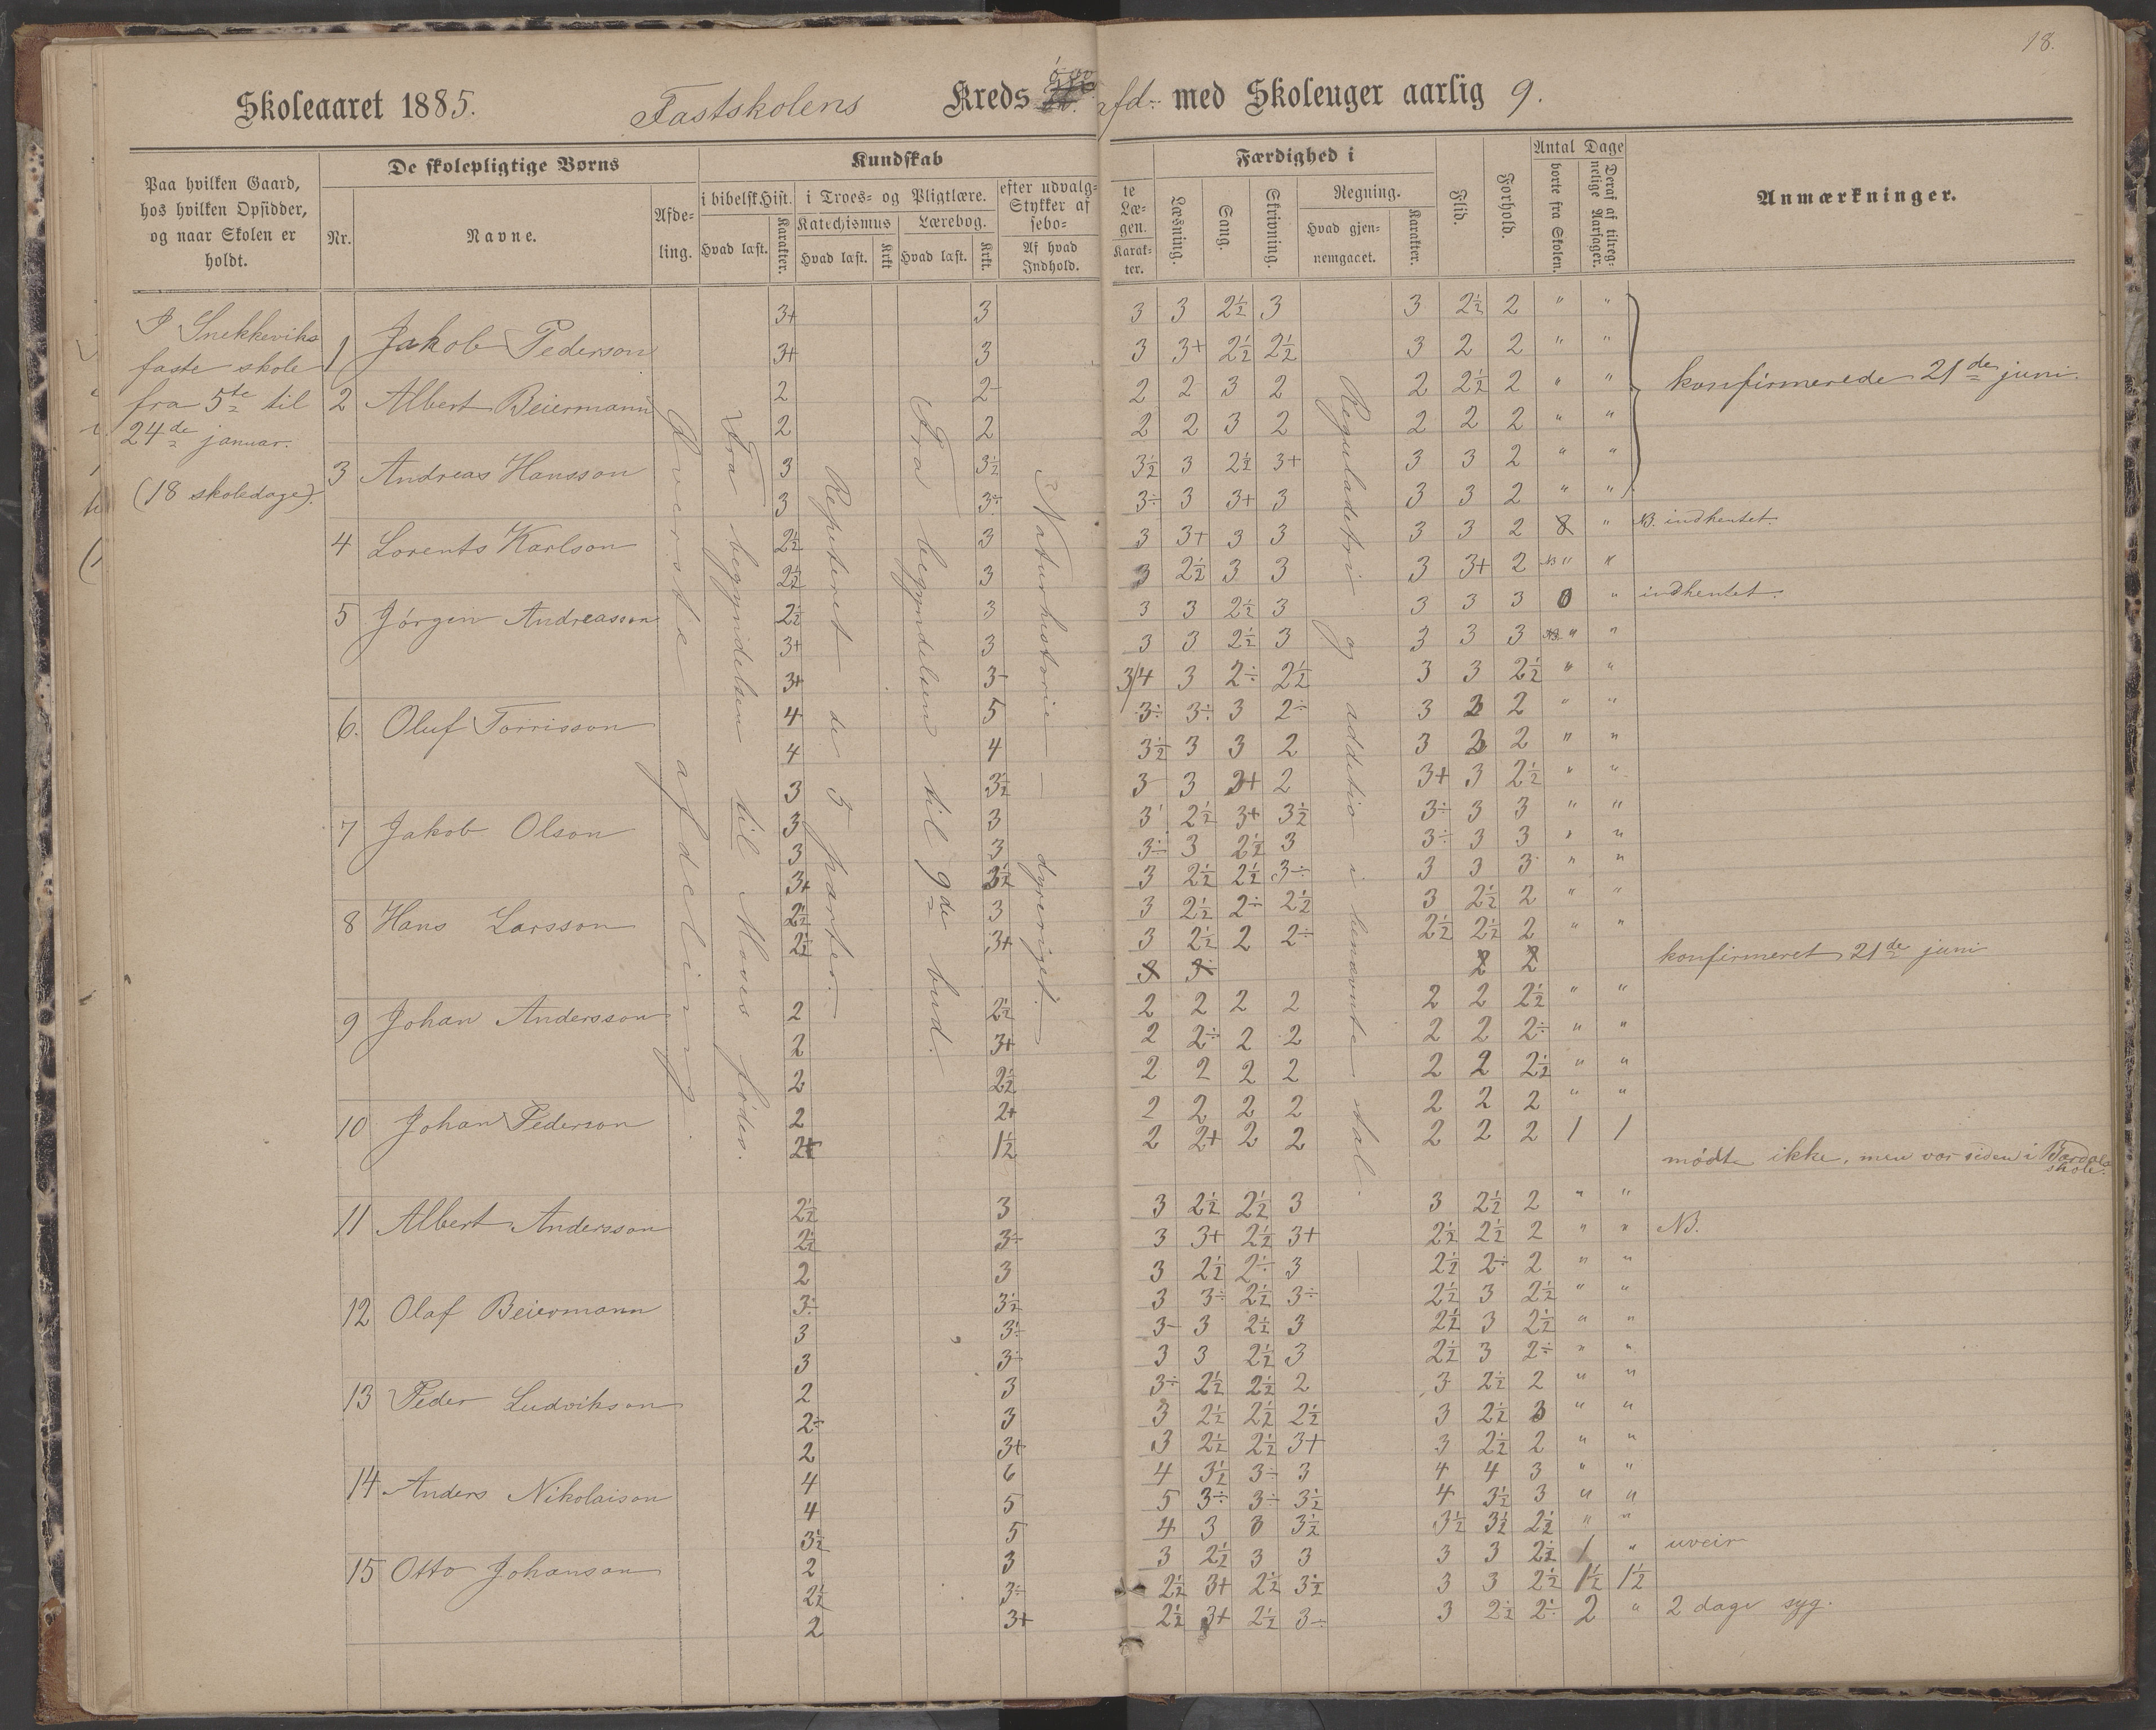 18.
Skoleaaret 1885. Fastskolens Kreds afd. med Skoleuger aarlig 9.
Paa hvilken Gaard, hos hvilken Opsidder, og naar Skolen er holdt.
De skolepligtige Børns
Nr. Navne. Afdeling.
Kundskab
i bibelsk Hist. i Troes- og Pligtlære. efter udvalgte Stykker af Læsebogen.
Katechismus Lærebog.
Hvad læst. Karakter. Hvad læst. Krkt. Hvad læst. Krkt. Af hvad Indhold. Karakter.
Færdighed i
Læsning. Sang. Skrivning. Regning.
Hvad gjennemgaaet. Karakter.
Flid. Forhold.
Antal Dage
borte fra Skolen. Deraf af tilregnelige Aarsager.
Anmærkninger.
I Snekkeviks
faste skole
fra 5te til
24de januar.
(18 skoledage).
Øverste afdeling.
Fra begyndelsen til Moses födes.
Repeteret de 5 parter.
Fra begyndelsen til 9de bud.
Naturhistorie — dyreriget.
Reguladetri og additio i benævnte tal.
3+ 3 3 3 2½ 3 3 2½ 2 " "
1 Jakob Pederson 3+ 3 3 3+ 2½ 2½ 3 2 2 " "
2 2 2 2 3 2 2 2½ 2 " " konfirmerede 21de juni.
2 Albert Beiermann 2 2 2 2 3 2 2 2 2 " "
3 3½ 3½ 3 2½ 3+ 3 3 2 " "
3 Andreas Hansson 3 3÷ 3÷ 3 3+ 3 3 3 2 " "
4 Lorents Karlson 2½ 3 3 3+ 3 3 3 3 2 8 " NB. indhentet.
2½ 3 3 2½ 3 3 3 3+ 2 " "
5 Jörgen Andreasson 2½ 3 3 3 2½ 3 3 3 3 0 " indhentet.
3+ 3 3 3 2½ 3 3 3 3 " "
3+ 3- 3/4 3 2÷ 2½ 3 3 2½ " "
6. Oluf Torrisson 4 5 3÷ 3÷ 3 2÷ 3 3 2 " "
4 4 3½ 3 3 2 3 3 2 " "
3 3½ 3 3 3+ 2 3+ 3 2½ " "
7 Jakob Olson 3 3 3 2½ 3+ 3½ 3÷ 3 3 " "
3 3 3÷ 3 2½ 3 3÷ 3 3 " "
3+ 3½ 3 2½ 2½ 3÷ 3 3 3 " "
8 Hans Larsson 2½ 3 3 2½ 2÷ 2½ 3 2½ 2 " "
2½ 3+ 3 2½ 2 2÷ 2½ 2½ 2 " "
konfirmeret 21de juni
9 Johan Andersson 2 2½ 2 2 2 2 2 2 2½ " "
2 3+ 2 2÷ 2 2 2 2 2÷ " "
2 2½ 2 2 2 2 2 2 2½ " "
10 Johan Pederson 2 2+ 2 2 2 2 2 2 2 " "
2+ 1½ 2 2+ 2 2 2 2 2 1 1
mödte ikke, men var siden i Bardals skole.
11 Albert Andersson 2½ 3 3 2½ 2½ 3 3 2½ 2 " "
2½ 3÷ 3 3+ 2½ 3+ 2½ 2½ 2 " " NB.
2 3 3 2½ 2÷ 3 2½ 2÷ 2 " "
12 Olaf Beiermann 3÷ 3½ 3 3÷ 2½ 3÷ 2½ 3 2½ " "
3 3÷ 3- 3 2½ 3 2½ 3 2½ " "
3 3÷ 3 3 2½ 3 2½ 3 2÷ " "
13 Peder Ludvikson 2 3 3÷ 2½ 2½ 2 3 2½ 2 " "
2÷ 3 3 2½ 2½ 2½ 3 2½ 3 " "
2 3+ 3 2½ 2½ 3+ 3 2½ 2 " "
14 Anders Nikolaison 4 6 4 3½ 3÷ 3 4 4 3 " "
4 5 5 3÷ 3÷ 3½ 4 3½ 3 " "
3½ 5 4 3 3 3½ 3½ 3½ 2½ " "
15 Otto Johanson 2 3 3 2½ 3 3 3 3 2½ 1 " uveir
2½ 3÷ 2½ 3+ 2½ 3½ 3 3 2½ 1½ 1½
2 3+ 2½ 3+ 2½ 3÷ 3 2½ 2÷ 2 " 2 dage syg.